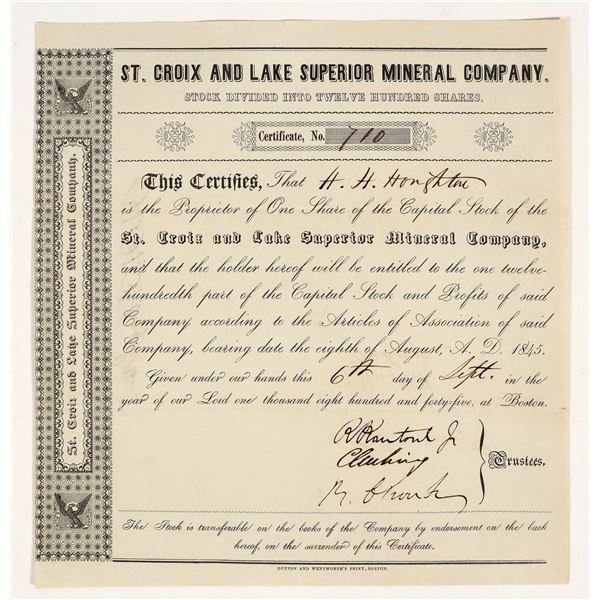 ST. CROIX AND LAKE SUPERIOR MINERAL COMPANY.
STOCK DIVIDED INTO TWELVE HUNDRED SHARES.
Certificate, No. 710
This Certifies, That H. H. Houghton
is the Proprietor of One Share of the Capital Stock of the
St. Croix and Lake Superior Mineral Company,
and that the holder hereof will be entitled to the one twelve-
hundredth part of the Capital Stock and Profits of said
Company according to the Articles of Association of said
Company, bearing date the eighth of August, A. D. 1845.
Given under our hands this 6th day of Sept. in the
year of our Lord one thousand eight hundred and forty-five, at Boston.
Trustees.
The Stock is transferable on the books of the Company by endorsement on the back
hereof, on the surrender of this Certificate.
DUTTON AND WENTWORTH'S PRINT, BOSTON.
St. Croix and Lake Superior Mineral Company.